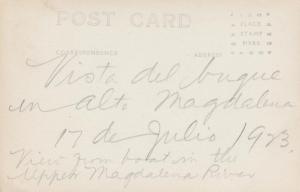 POST CARD
PLACE
STAMP
HERE
CORRESPONDENCE
ADDRESS
Vista del buque
en alto Magdalena
17 de Julio 1923
View from boat in the
Upper Magdalena River